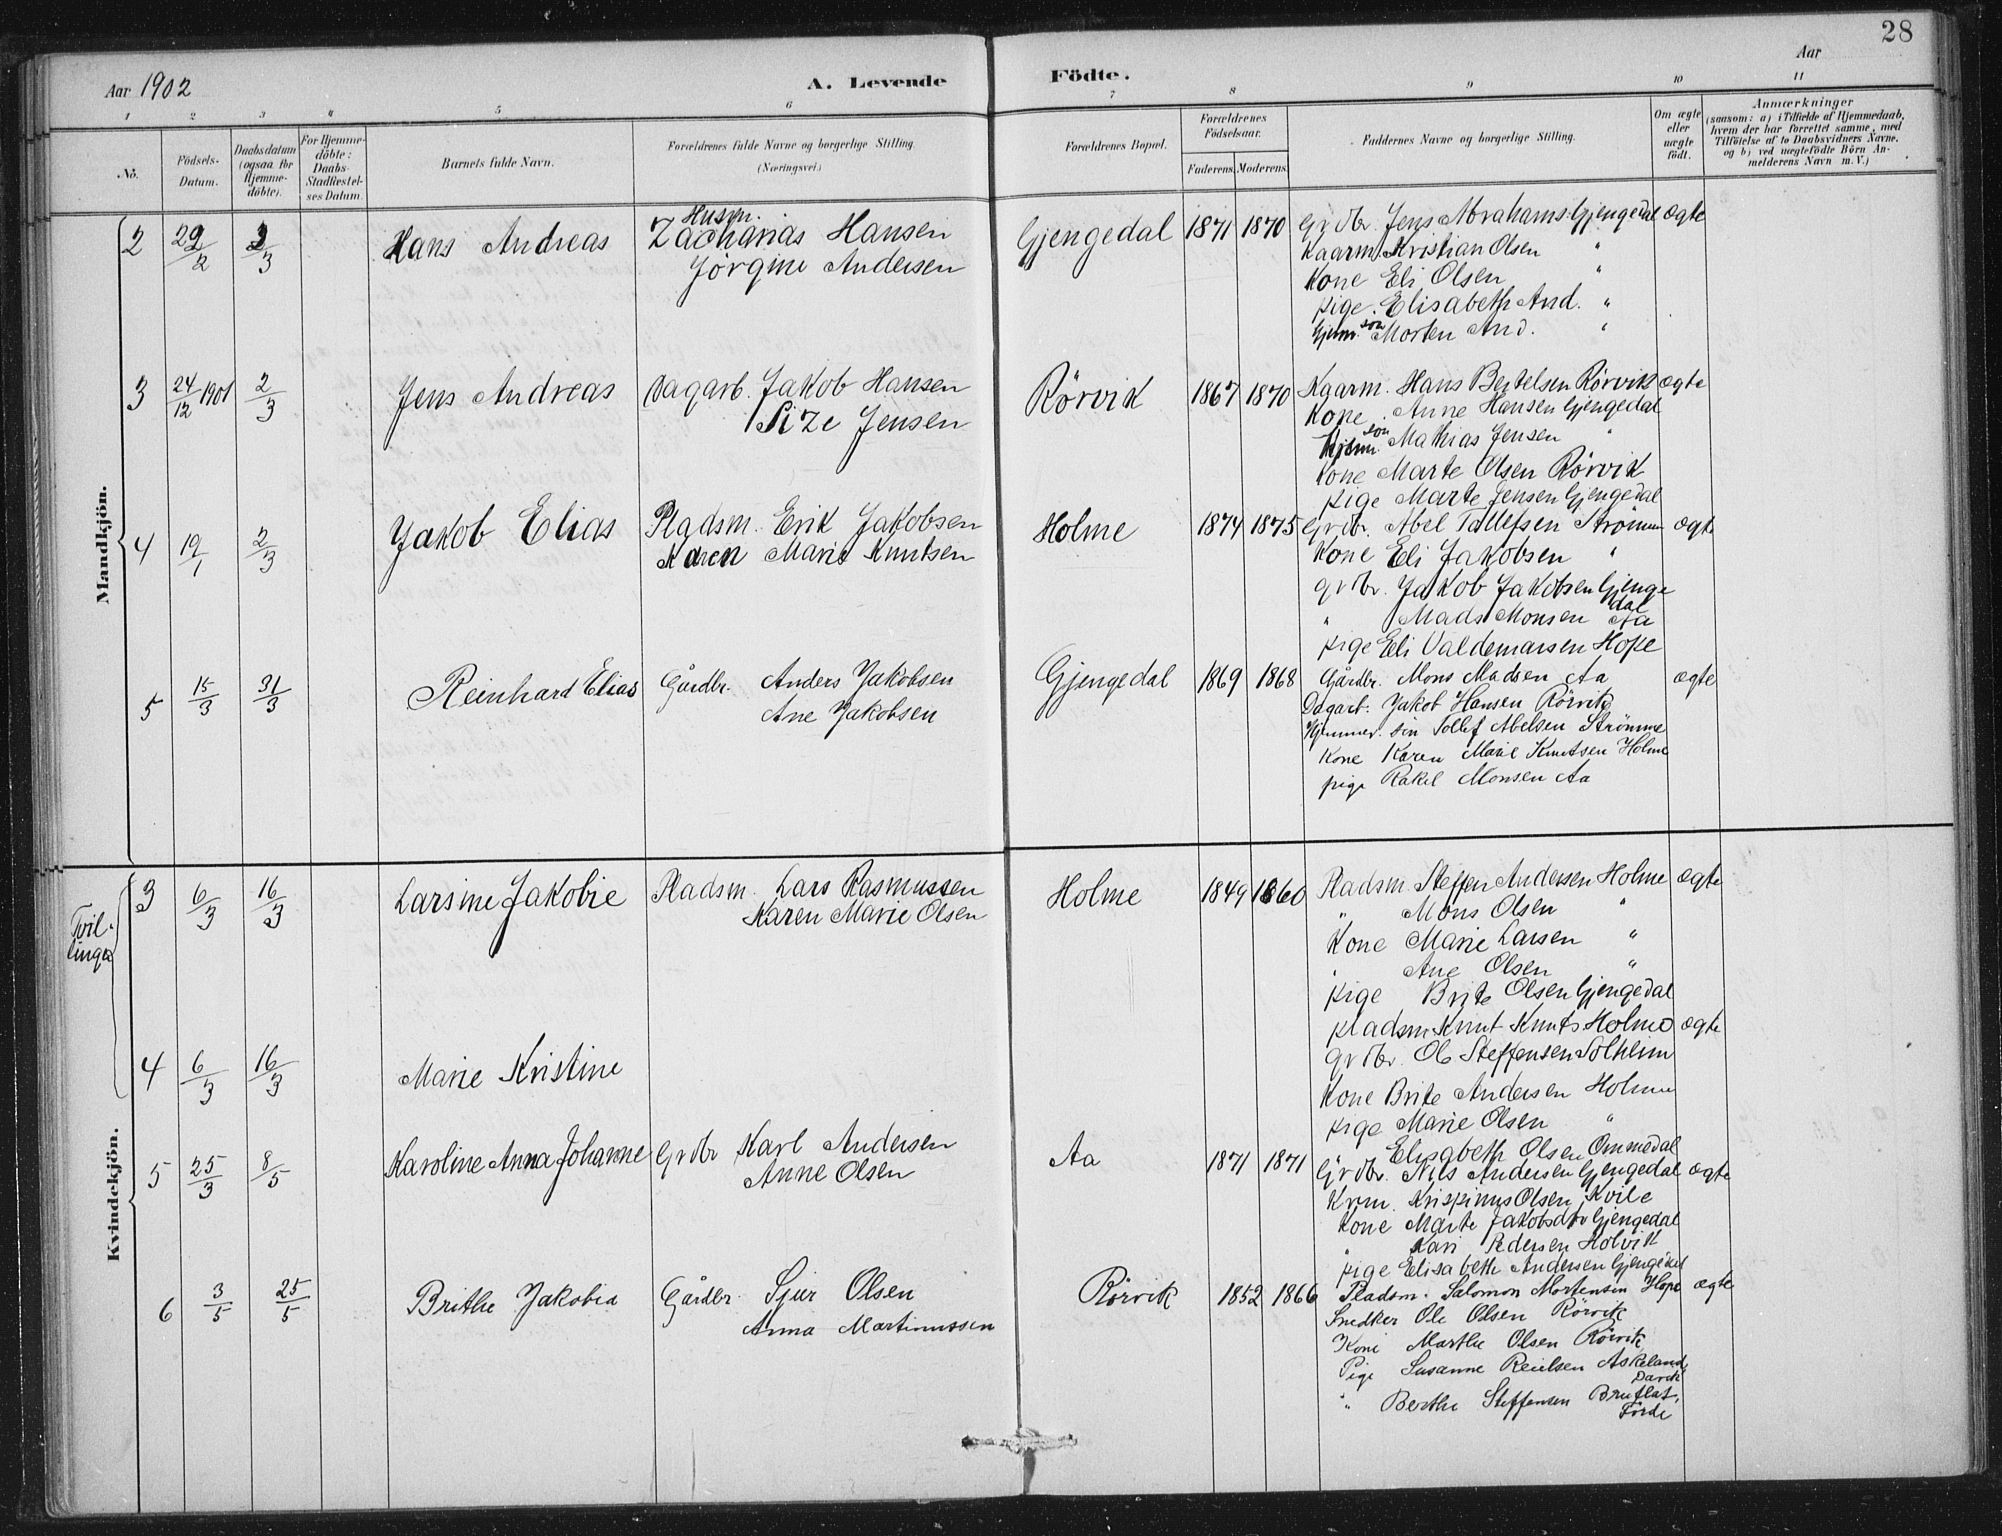 28
Aar 1902
A. Levende Födte.
Aar
1 2 3 4 5 6 7 8 9 10 11
No.
Födsels-Datum.
Daabsdatum (ogsaa for Hjemme-döbte).
For Hjemme-döbte: Daabs-Stadfæstel-ses Datum.
Barnets fulde Navn.
Forældrenes fulde Navne og borgerlige Stilling. (Næringsvei.)
Forældrenes Bopæl.
Forældrenes Födselsaar.
Faderens. Moderens.
Faddernes Navne og borgerlige Stilling.
Om ægte eller uægte født.
Anmærkninger (saasom: a) i Tilfælde af Hjemmedaab, hvem der har forrettet samme, med Tilföielse af to Daabsvidners Navne, og b) ved uægtefödte Börn An-melderens Navn m. V.)
Mandkjön.
2 29/2 3/3 Hans Andreas Husm. Zacharias Hansen Gjengedal 1871 1870 Grdbr. Jens Abrahams. Gjengedal ægte
Jörgine Andersen Kaarm. Kristian Olsen "
Kone Eli Olsen "
pige. Elisabeth And. "
Hjem. søn Morten And. "
3 24/12 1901 2/3 Jens Andreas Dagarb. Jakob Hansen Rörvik 1867 1870 Kaarm. Hans Bertelsen Rörvik ægte
Size Jensen Kone Anne Hansen Gjengedal
Hjem. søn Mathias Jensen "
Kone Marte Olsen Rörvik
pige Marte Jensen Gjengedal
4 19/1 2/3 Jakob Elias Pladsm. Erik Jakobsen Holme 1874 1875 Grdbr. Abel Tollefsen Strömm ægte
Karen Marie Knutsen Kone Eli Jakobsen "
grdbr. Jakob Jakobsen Gjengedal
" Mads Monsen Aa
pige Eli Valdemarsen Hope
5 15/3 31/3 Reinhard Elias Gårdbr. Anders Jakobsen Gjengedal 1869 1868 Gårdbr. Mons Madsen Aa ægte
Ane Jakobsen Dagarb. Jakob Hansen Rörvik
Hjemmev. sön Tollef Abelsen Strömme
Kone Karen Marie Knutsen Holme
pige Rakel Monsen Aa
Kvindekjön.
Tvillinger
3 6/3 16/3 Larsine Jakobie Pladsm. Lars Rasmussen Holme 1849 1860 Pladsm. Steffen Andersen Holme ægte
Karen Marie Olsen " Mons Olsen "
Kone Marie Larsen "
" Ane Olsen "
pige Brite Olsen Gjengedal
4 6/3 16/3 Marie Kristine pladsm Knut Knuts. Holme ægte
grdbr. Ole Steffensen Solheim
Kone Brite Andersen Holme
pige Marie Olsen "
Elisabeth Olsen Ommedal
5 25/3 8/5 Karoline Anna Johanne Grdbr Karl Andersen Aa 1871 1871 Grdbr. Nils Andersen Gjengedal ægte
Anne Olsen Krm. Krispinus Olsen Kvile
Kone Marte Jakobsdtr Gjengedal
" Kari Pedersen Holvik
pige Elisabeth Andersen Gjengedal
6 3/5 25/5 Brithe Jakobia Gårdbr. Sjur Olsen Rörvik 1852 1866 Pladsm. Salomon Mortensen Hope ægte
Anna Martinussen Snedker Ole Olsen Rörvik
Kone Marthe Olsen Rörvik
Pige Susanne Reielsen Askeland, Davik
" Berthe Steffensen Bruflat, Förde